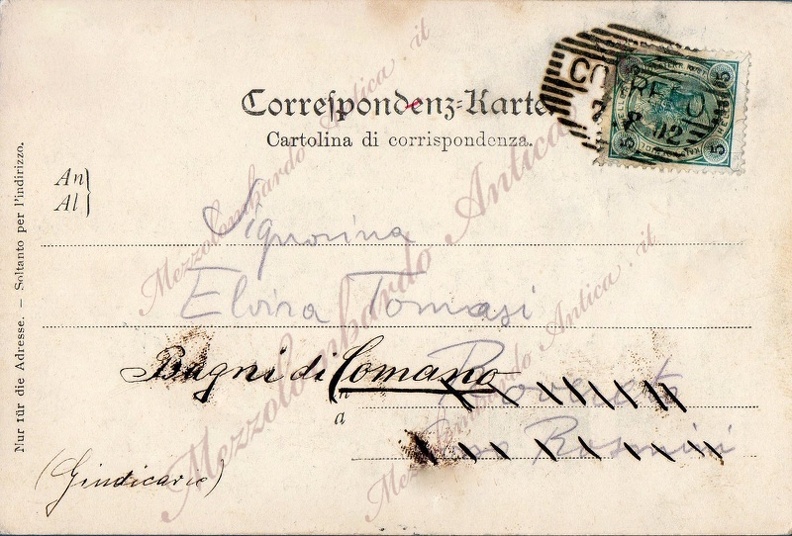 Correspondenz-Karte
Cartolina di corrispondenza.
An
Al
Nur für die Adresse. — Soltanto per l'indirizzo.
Signorina
Elvira Tomasi
Bagni di Comano
Rovereto
n
a
Rosmini
(Giudicarie)
5 5
5 5
02
Mezzolombardo Antica . it
Mezzolombardo Antica . it
Mezzolombardo Antica . it